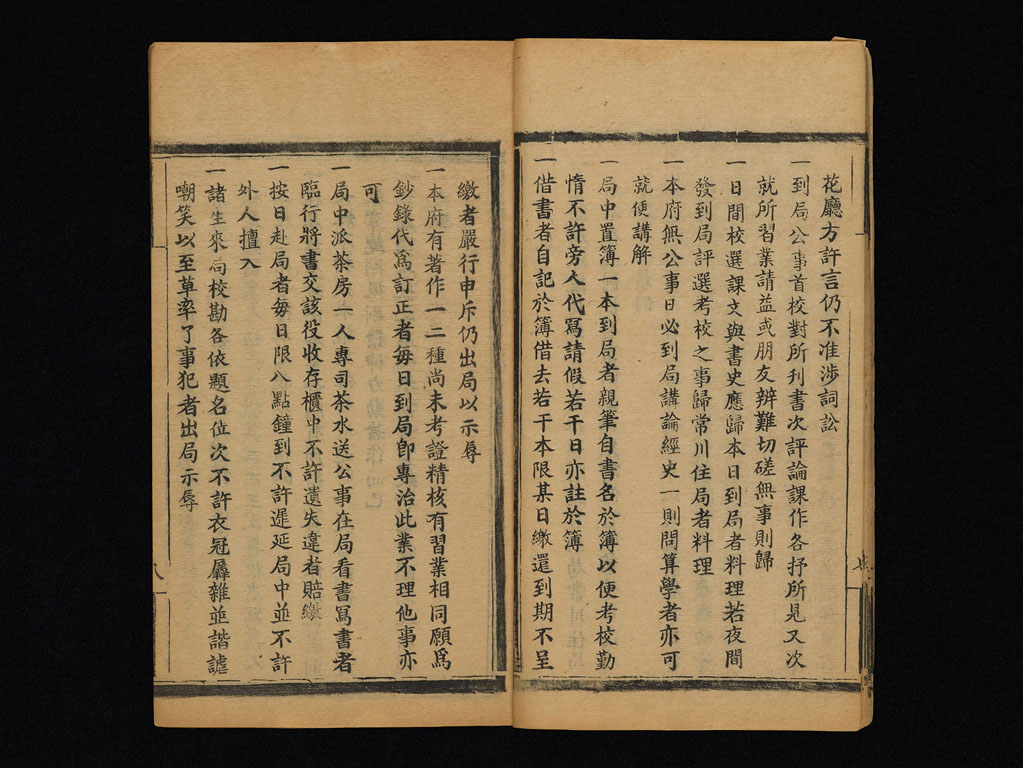 花廳方許言仍不准涉詞訟
一到局公事首校對所刊書次評論課作各抒所見又次
就所習業請益或朋友辨難切磋無事則歸
一日間校選課文與書史應歸本日到局者料理若夜間
發到局評選考校之事歸常川住局者料理
一本府無公事日必到局講論經史一則問算學者亦可
就便講解
一局中置簿一本到局者親筆自書名於簿以便考校勤
惰不許旁人代寫請假若干日亦註於簿
一借書者自記於簿借去若干本限某日繳還到期不呈
繳者嚴行申斥仍出局以示辱
一本府有著作一二種尚未考證精核有習業相同願爲
鈔錄代爲訂正者每日到局卽專治此業不理他事亦
可
一局中派茶房一人專司茶水送公事在局看書寫書者
臨行將書交該役收存櫃中不許遺失違者賠繳
一按日赴局者每日限八點鐘到不許遲延局中並不許
外人擅入
一諸生來局校勘各依題名位次不許衣冠羼雜並諧謔
嘲笑以至草率了事犯者出局示辱
八